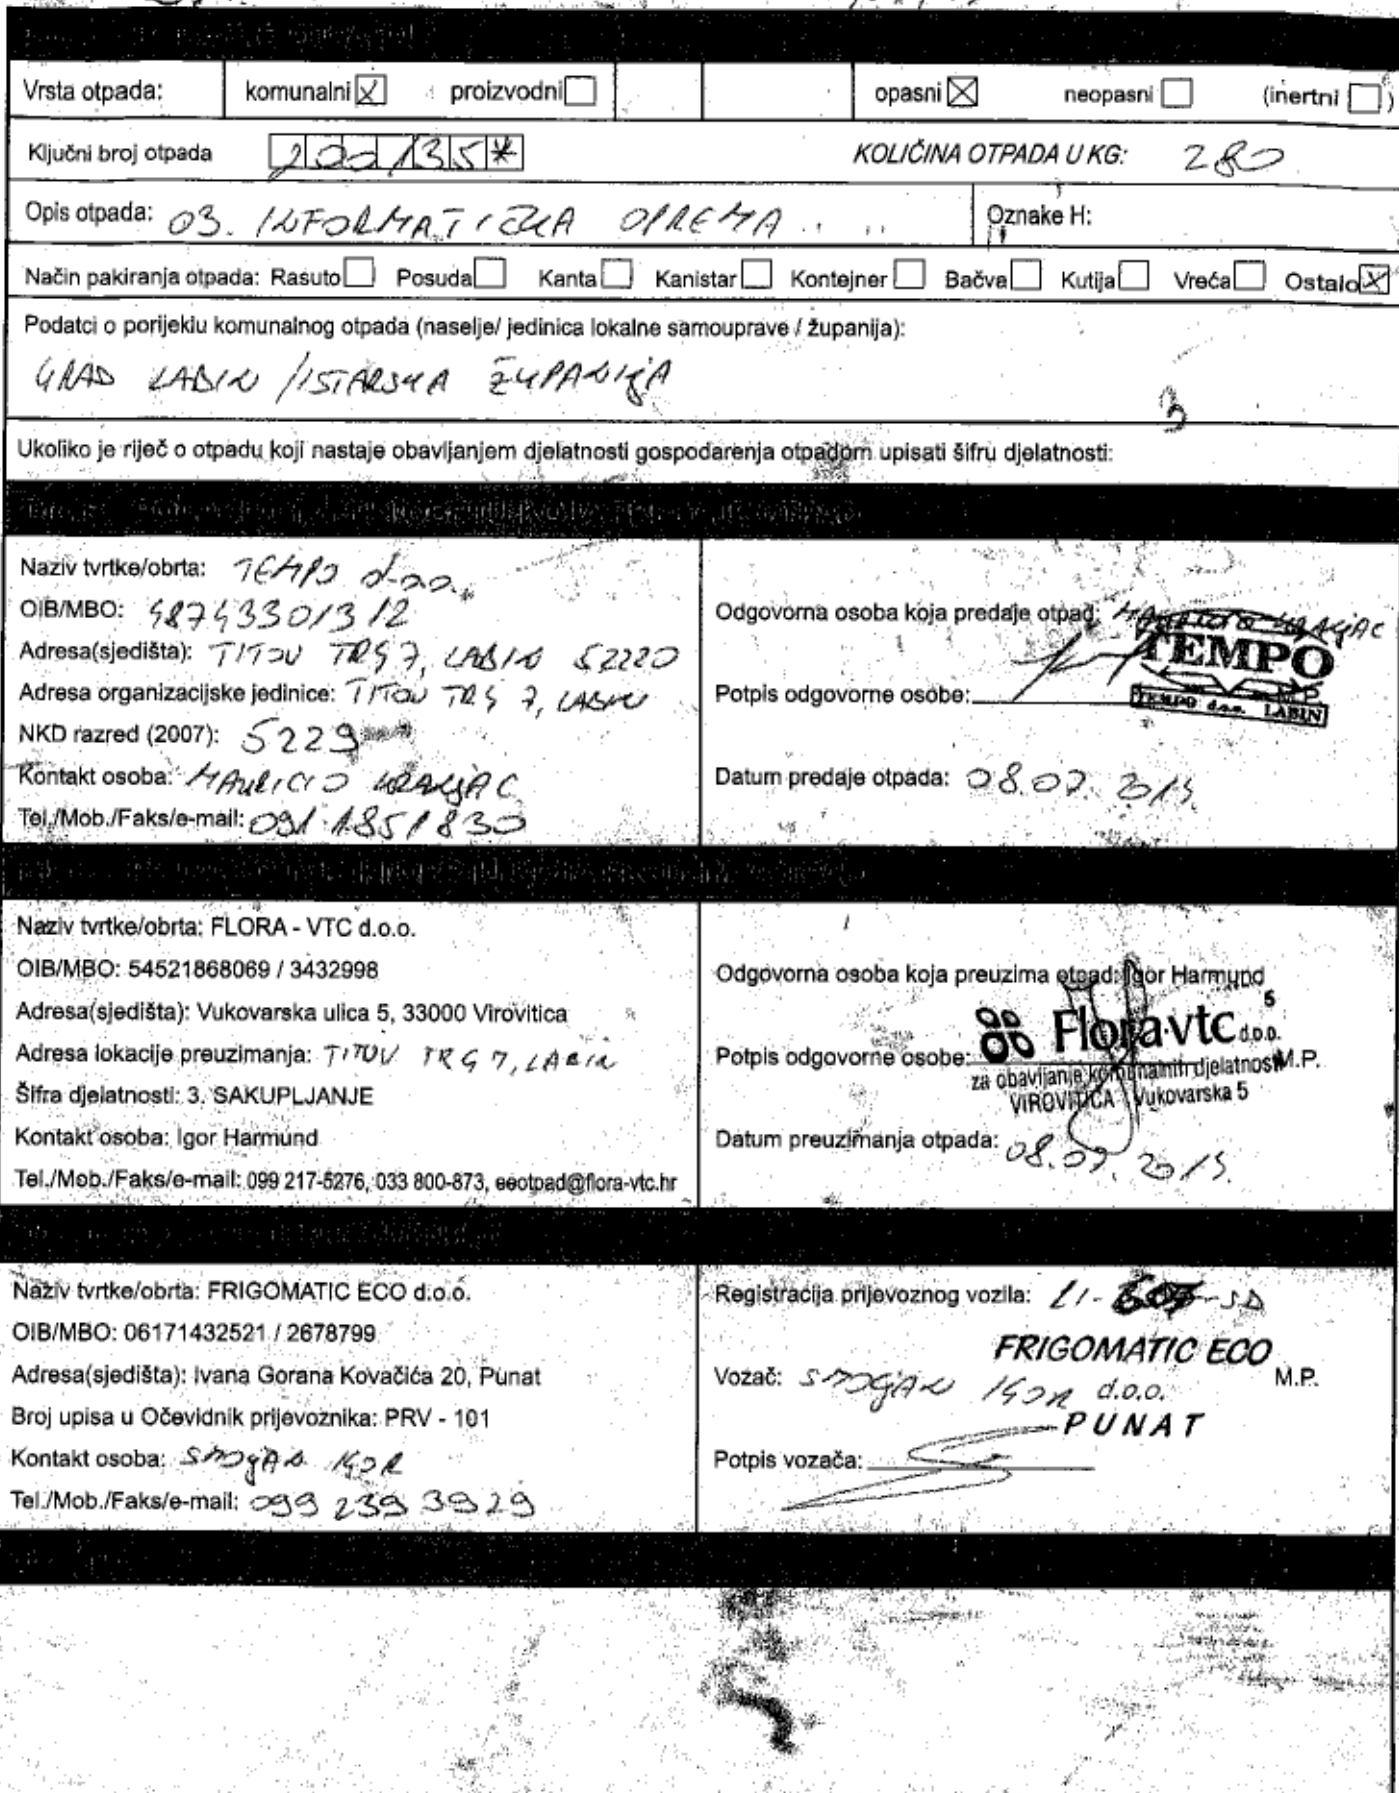 Vrsta otpada: komunalni proizvodni opasni neopasni (inertni )
Ključni broj otpada 200135* KOLIČINA OTPADA U KG: 280
Opis otpada: 03. INFORMATIČKA OPREMA Oznake H:
Način pakiranja otpada: Rasuto Posuda Kanta Kanistar Kontejner Bačva Kutija Vreća Ostalo
Podatci o porijeklu komunalnog otpada (naselje/ jedinica lokalne samouprave / županija):
GRAD LABIN / ISTARSKA ŽUPANIJA
3
Ukoliko je riječ o otpadu koji nastaje obavljanjem djelatnosti gospodarenja otpadom upisati šifru djelatnosti:
Naziv tvrtke/obrta: TEMPO d.o.o.
OIB/MBO: 48743301312
Adresa(sjedišta): TITOV TRG 7, LABIN 52220
Adresa organizacijske jedinice: TITOV TRG 7, LABIN
NKD razred (2007): 5229
Kontakt osoba: MAURICIO KRANJAC
Tel./Mob./Faks/e-mail: 091 1851830
Odgovorna osoba koja predaje otpad: MAURICIO KRANJAC
TEMPO
Potpis odgovorne osobe: M.P.
TEMPO d.o.o. LABIN
Datum predaje otpada: 08.07. 2015.
Naziv tvrtke/obrta: FLORA - VTC d.o.o.
OIB/MBO: 54521868069 / 3432998
Adresa(sjedišta): Vukovarska ulica 5, 33000 Virovitica
Adresa lokacije preuzimanja: TITOV TRG 7, LABIN
Šifra djelatnosti: 3. SAKUPLJANJE
Kontakt osoba: Igor Harmund
Tel./Mob./Faks/e-mail: 099 217-5276, 033 800-873, eeotpad@flora-vtc.hr
Odgovorna osoba koja preuzima otpad: Igor Harmund
5
Flora-vtc d.o.o.
Potpis odgovorne osobe: M.P.
za obavljanje komunalnih djelatnosti
VIROVITICA Vukovarska 5
Datum preuzimanja otpada: 08.07. 2015.
Naziv tvrtke/obrta: FRIGOMATIC ECO d.o.o.
OIB/MBO: 06171432521 / 2678799
Adresa(sjedišta): Ivana Gorana Kovačića 20, Punat
Broj upisa u Očevidnik prijevoznika: PRV - 101
Kontakt osoba: IGOR
Tel./Mob./Faks/e-mail: 099 239 3929
Registracija prijevoznog vozila:
FRIGOMATIC ECO
Vozač: IGOR d.o.o. M.P.
PUNAT
Potpis vozača: